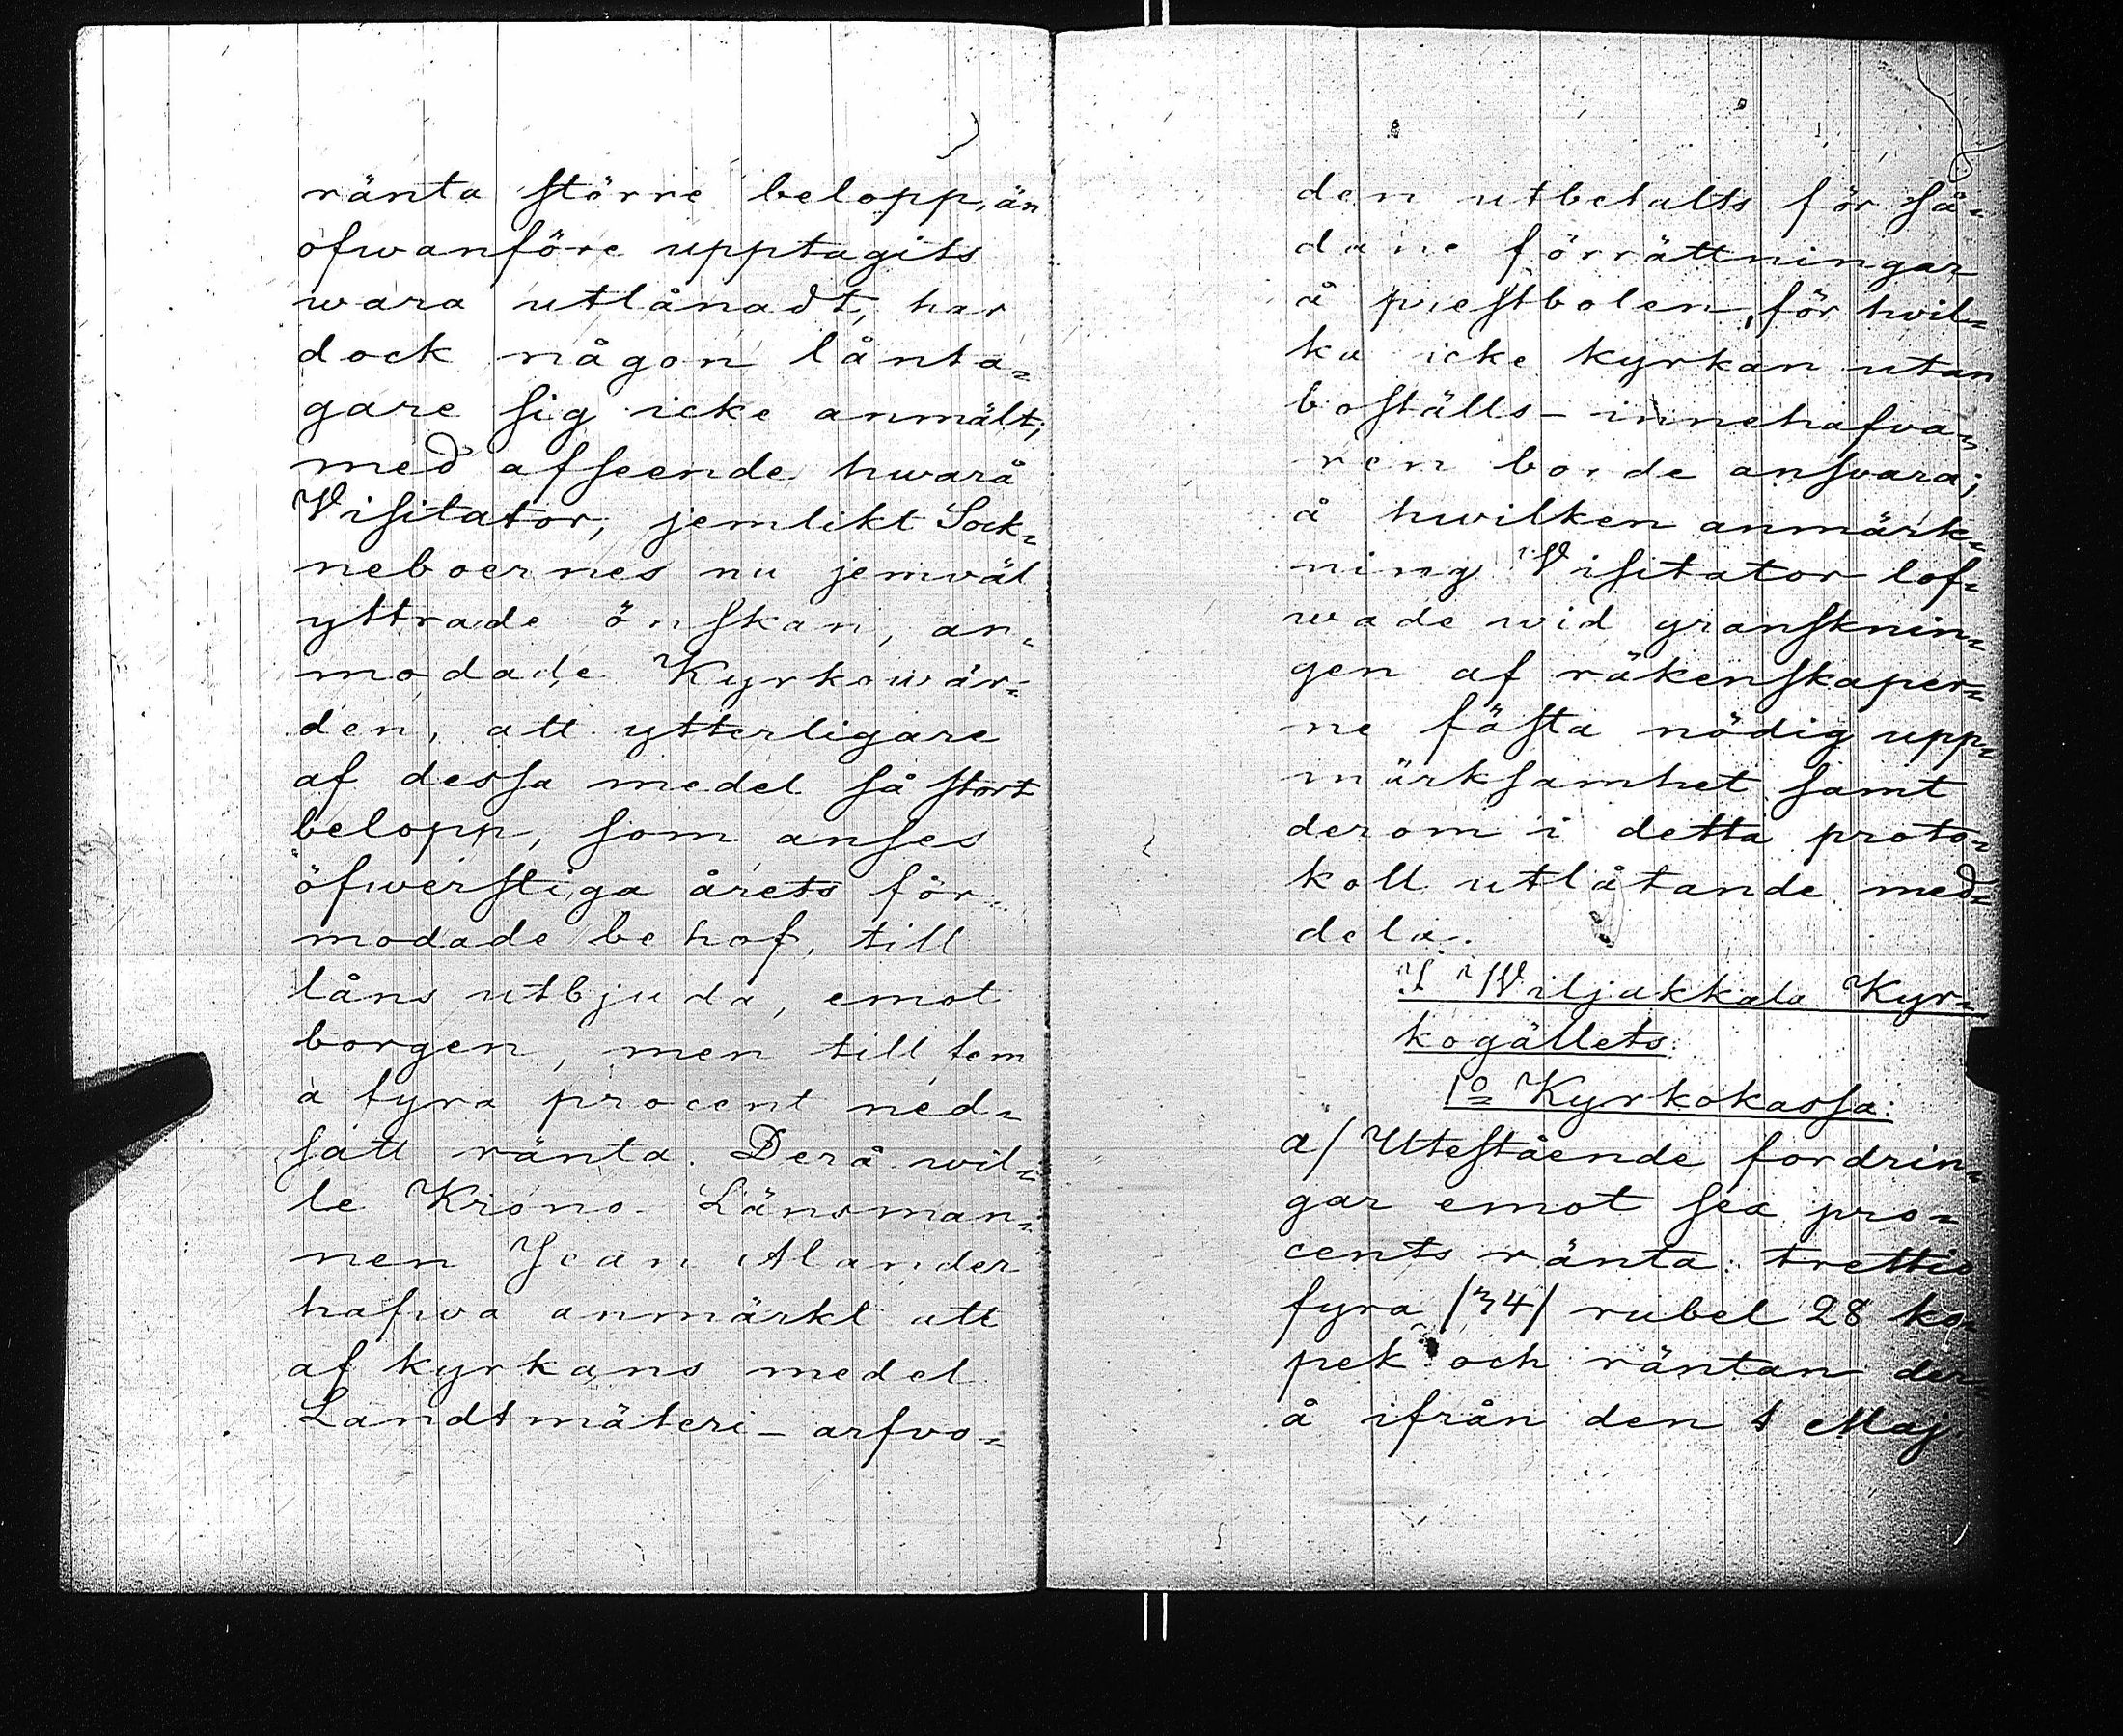 ränta större belopp, än
ofwanföre upptagits
wara utlånadt, har
dock någon lånta=
gare sig icke anmält;
med afseende hwarå
Visitator, jemlikt Sock=
neboernes nu jemväl
yttrade önskan, an=
modade Kyrkowär=
den, att ytterligare
af dessa medel så stort
belopp, som anses
öfwerstiga årets för=
modade behof, till
låns utbjuda, emot
borgen, men till fem
a fyra procent ned=
satt ränta. Derå wil=
le Krono Länsman=
nen Jean Alander
hafwa anmärkt att
af kyrkans medel
Landtmäteri-arfvo=
den utbetalts för så=
dane förrättningar
å prestbolen, för hvil=
ka icke kyrkan utan
boställs-innehafva=
ren borde ansvara;
å hwilken anmärk=
ning Visitator lof=
wade wid gransknin=
gen af räkenskaper=
ne fästa nödig upp=
märksamhet samt
derom i detta proto=
koll utlåtande med=
dela.
I Wiljakkala Kyr=
kogällets
1º Kyrkokassa:
a/ Utestående fordrin=
gar emot sex pro=
cents ränta: trettio
fyra /34/ rubel 28 ko=
pek och räntan der=
å ifrån den 1 Maj